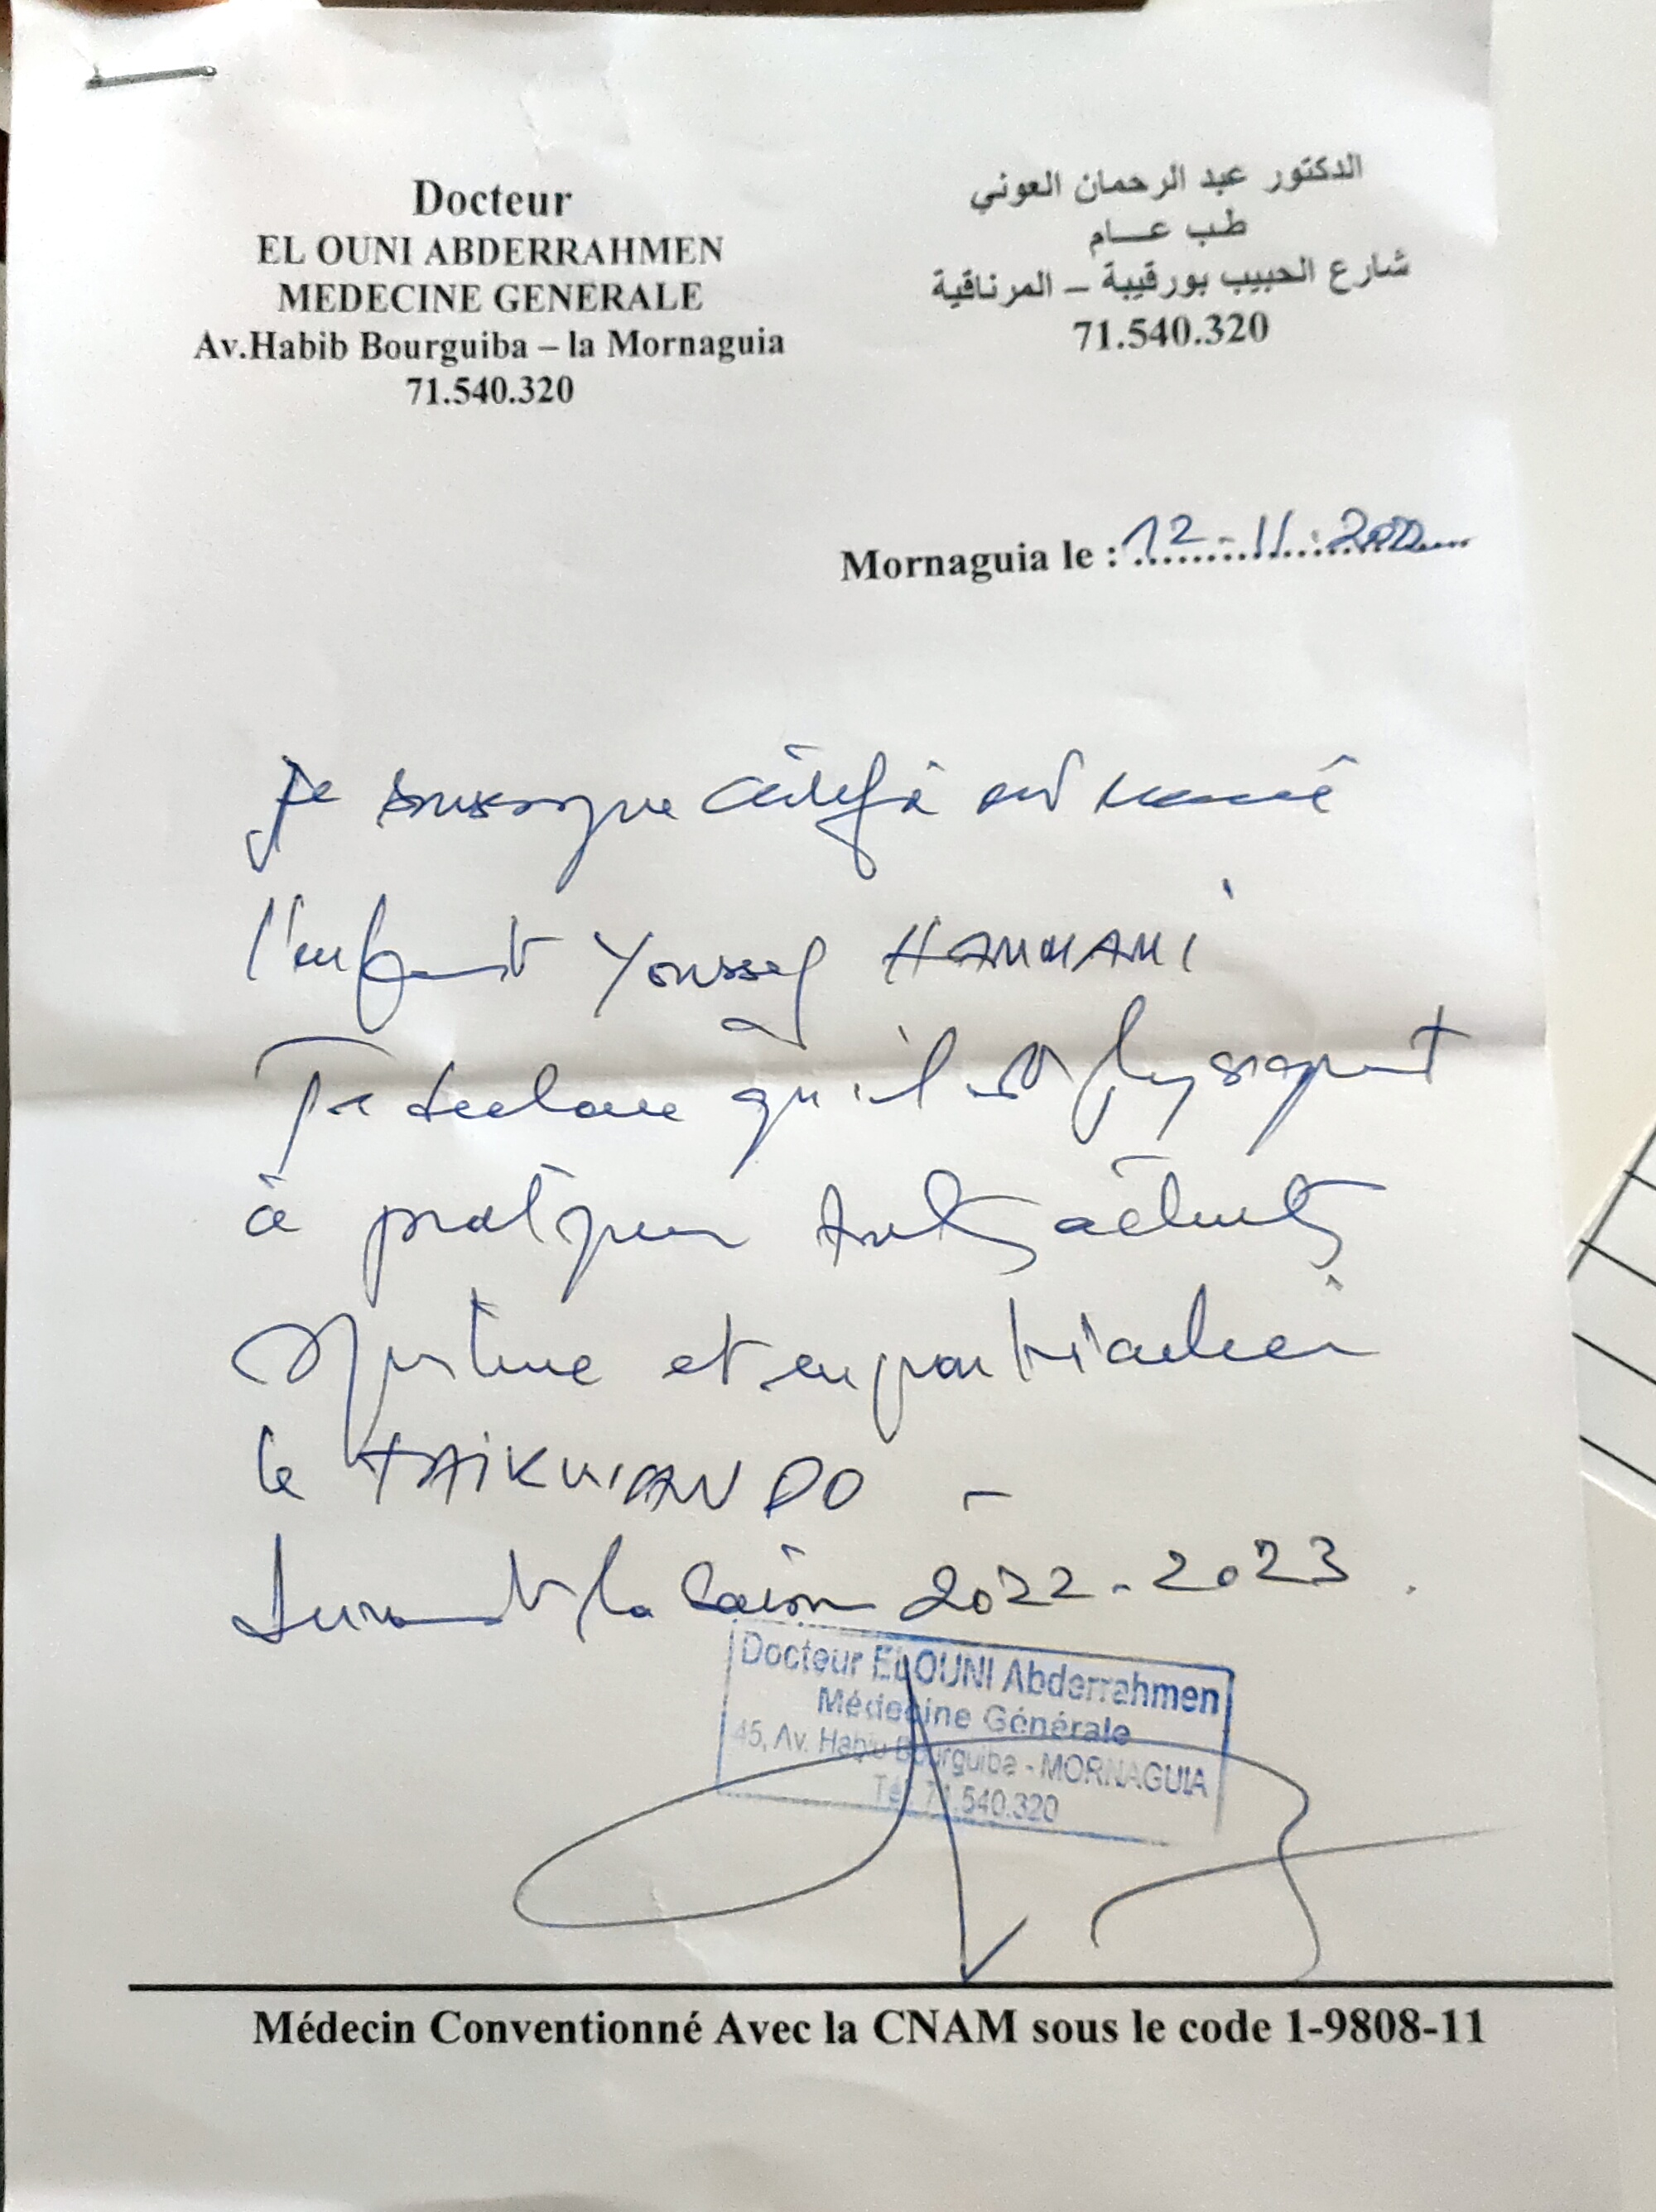 Docteur
EL OUNI ABDERRAHMEN
MEDECINE GENERALE
Av.Habib Bourguiba – la Mornaguia
71.540.320
الدكتور عبد الرحمان العوني
طب عــام
شارع الحبيب بورقيبة – المرناقية
71.540.320
Mornaguia le : 12-11-2022
Je soussigne certifie
l'enfant Youssef HAMMAMI
Je declare qu'il est
à pratiquer toutes activités
sportive et en particulier
le TAIKWANDO -
durant la saison 2022-2023.
Docteur EL OUNI Abderrahmen
Médecine Générale
45, Av. Habib Bourguiba - MORNAGUIA
Tél: 71.540.320
Médecin Conventionné Avec la CNAM sous le code 1-9808-11